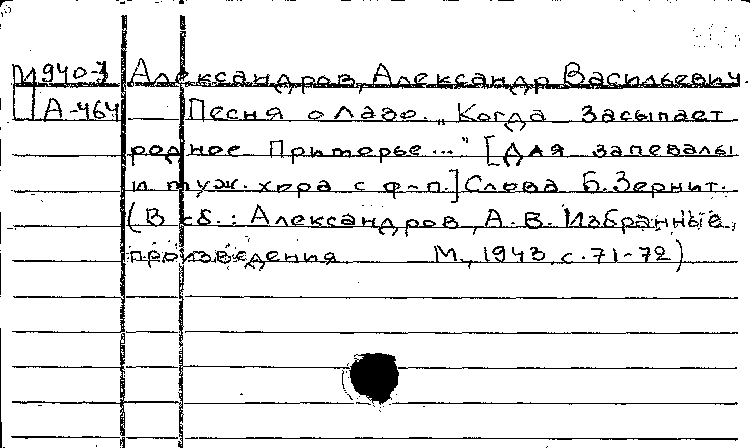 М940-3 Александров, Александр Васильевич.
А-464 Песня о Лазо. „Когда засыпает
родное Приморье..." [Для запевалы
и муж. хора с ф-п.] Слова Б. Зернит.
(В сб.: Александров, А. В. Избранные
произведения М., 1943, с. 71-72)